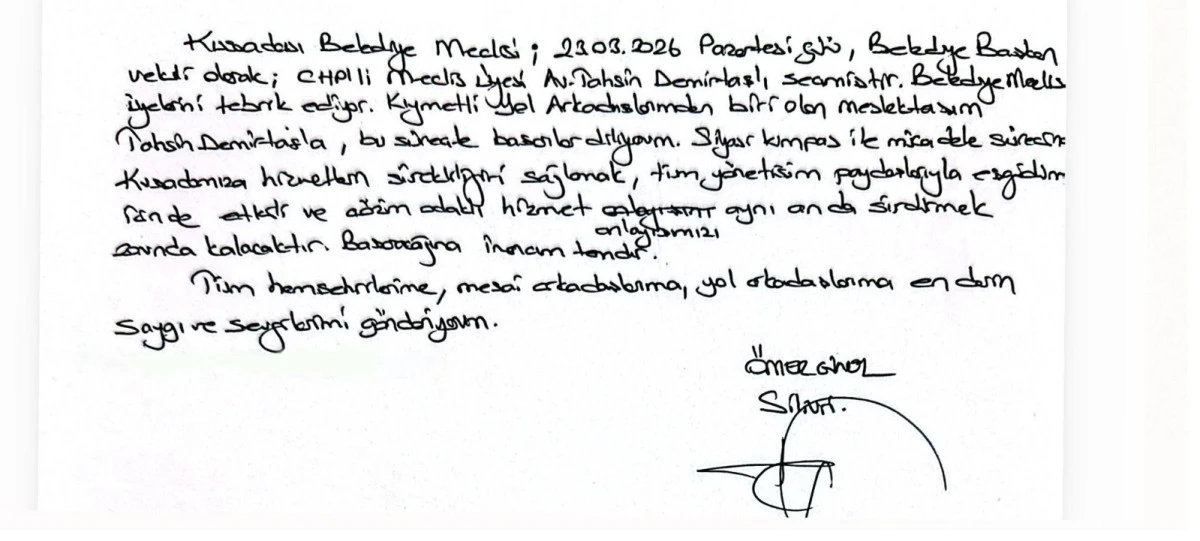 Kuşadası Belediye Meclisi; 23.03.2026 Pazartesi günü, Belediye Başkan
vekili olarak; CHP'li Meclis Üyesi Av. Tahsin Demirtaş'ı, seçmiştir. Belediye Meclis
üyelerini tebrik ediyor. Kıymetli Yol Arkadaşlarımdan biri olan meslektaşım
Tahsin Demirtaş'a, bu süreçte başarılar diliyorum. Siyasi kumpas ile mücadele sürecinde
Kuşadamıza hizmetlerin sürekliliğini sağlamak, tüm yönetişim paydaşlarıyla eşgüdüm
içinde etkili ve çözüm odaklı hizmet aynı anda sürdürmek
anlayışımızı
zorunda kalacaktır. Başaracağına inancım tamdır.
Tüm hemşehrilerime, mesai arkadaşlarıma, yol arkadaşlarıma en derin
saygı ve sevgilerimi gönderiyorum.
ÖMER GÜNEL